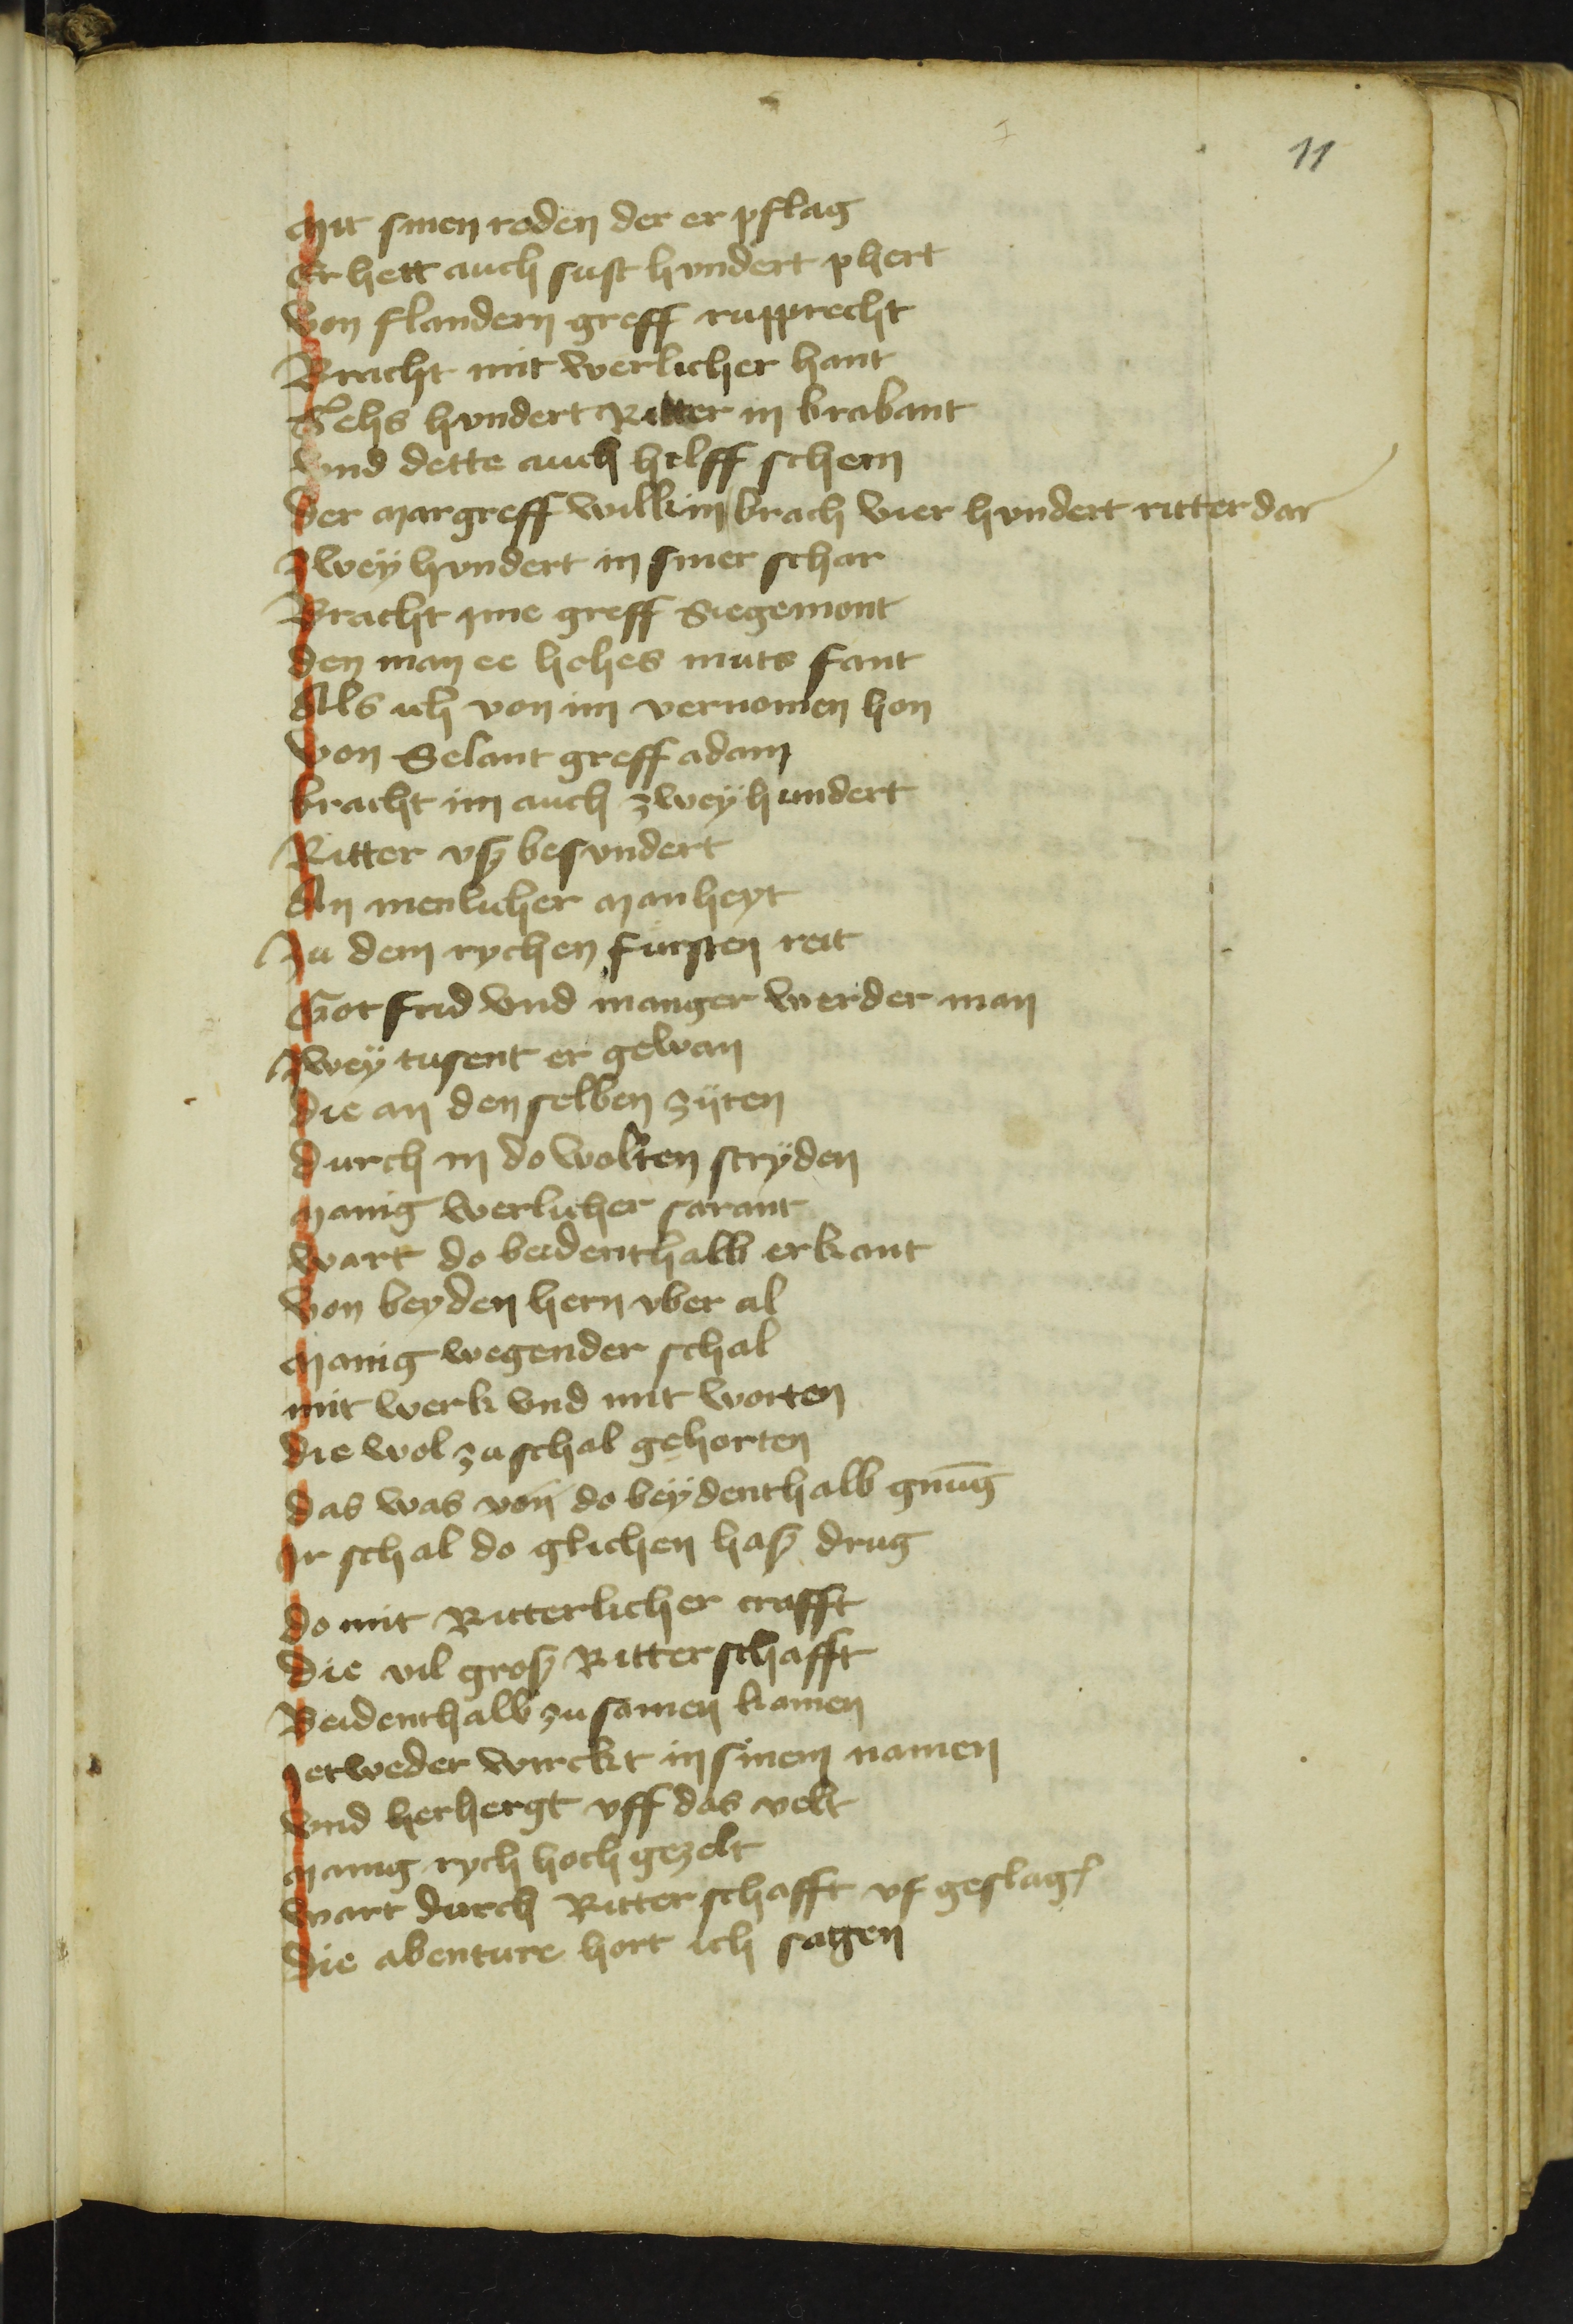 11
Mit sinen reden der er pflag
Er hett auch sust hundert phert
Von flandern greff rupprecht
Bracht mit werlicher hant
Sehs hvndert Ritter in brabant
Vnd dette auch hilff schern
Der margreff wilkin brach vier hvndert ritter dar
Zwey hvndert in siner schar
Bracht yme greff Siegemont
Den man ee hohes muts fant
Als ich von im vernomen hon
Von Selant greff adam
bracht im auch zwey hundert
Ritter vß besvndert
An menlicher manheyt
Zu dem rychen fursten reit
Gotfrid vnd manger werder man
Zwey tusent er gewan
Die an den selben zijten
Durch in do wolten stryden
Manig werlicher sarant
Wart do beidenthalb erkant
Von beyden hern vber al
Manig wegender schal
mit werk vnd mit worten
Die wol zu schal gehorten
Das was von do beydenthalb gnug
Ir schal do glichen haß drug
Do mit Ritterlicher crafft
Die vil groß Ritterschafft
Beidenthalb zu samen kamen
Jetweder wirckt in sinem namen
Vnd herbergt vff das velt
Manig rych hoch gezelt
Wart durch Ritterschafft vf geslag
Die abenture hort ich sagen